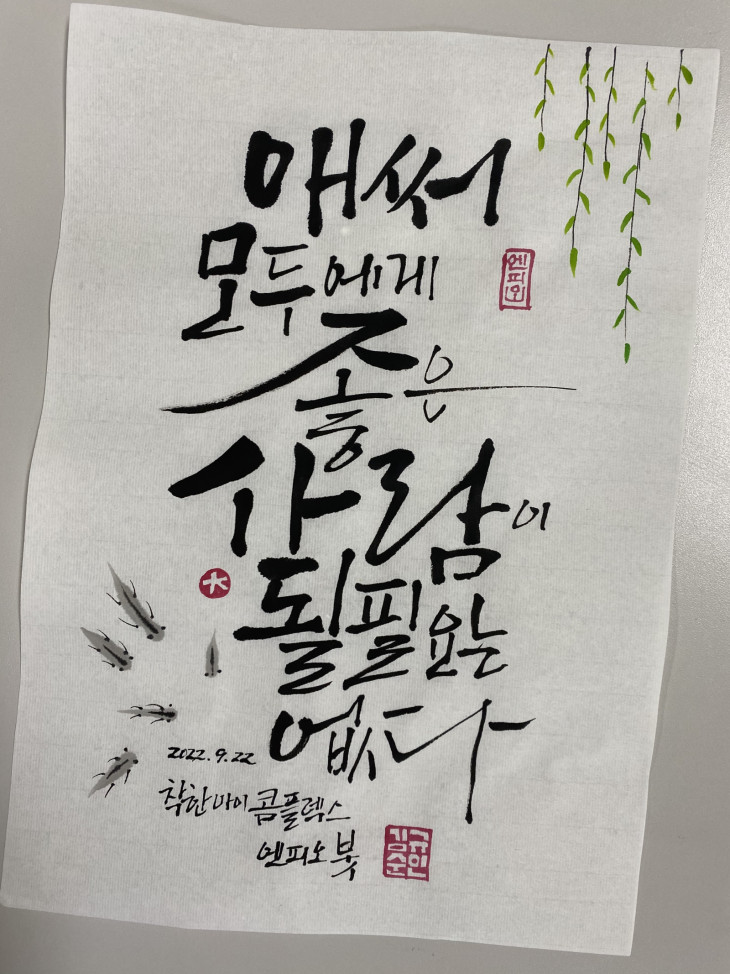 애써
모두에게
좋은
사람이
될필요는
없다
엔피오
2022.9.22
착한아이 콤플렉스
엔피오 붓